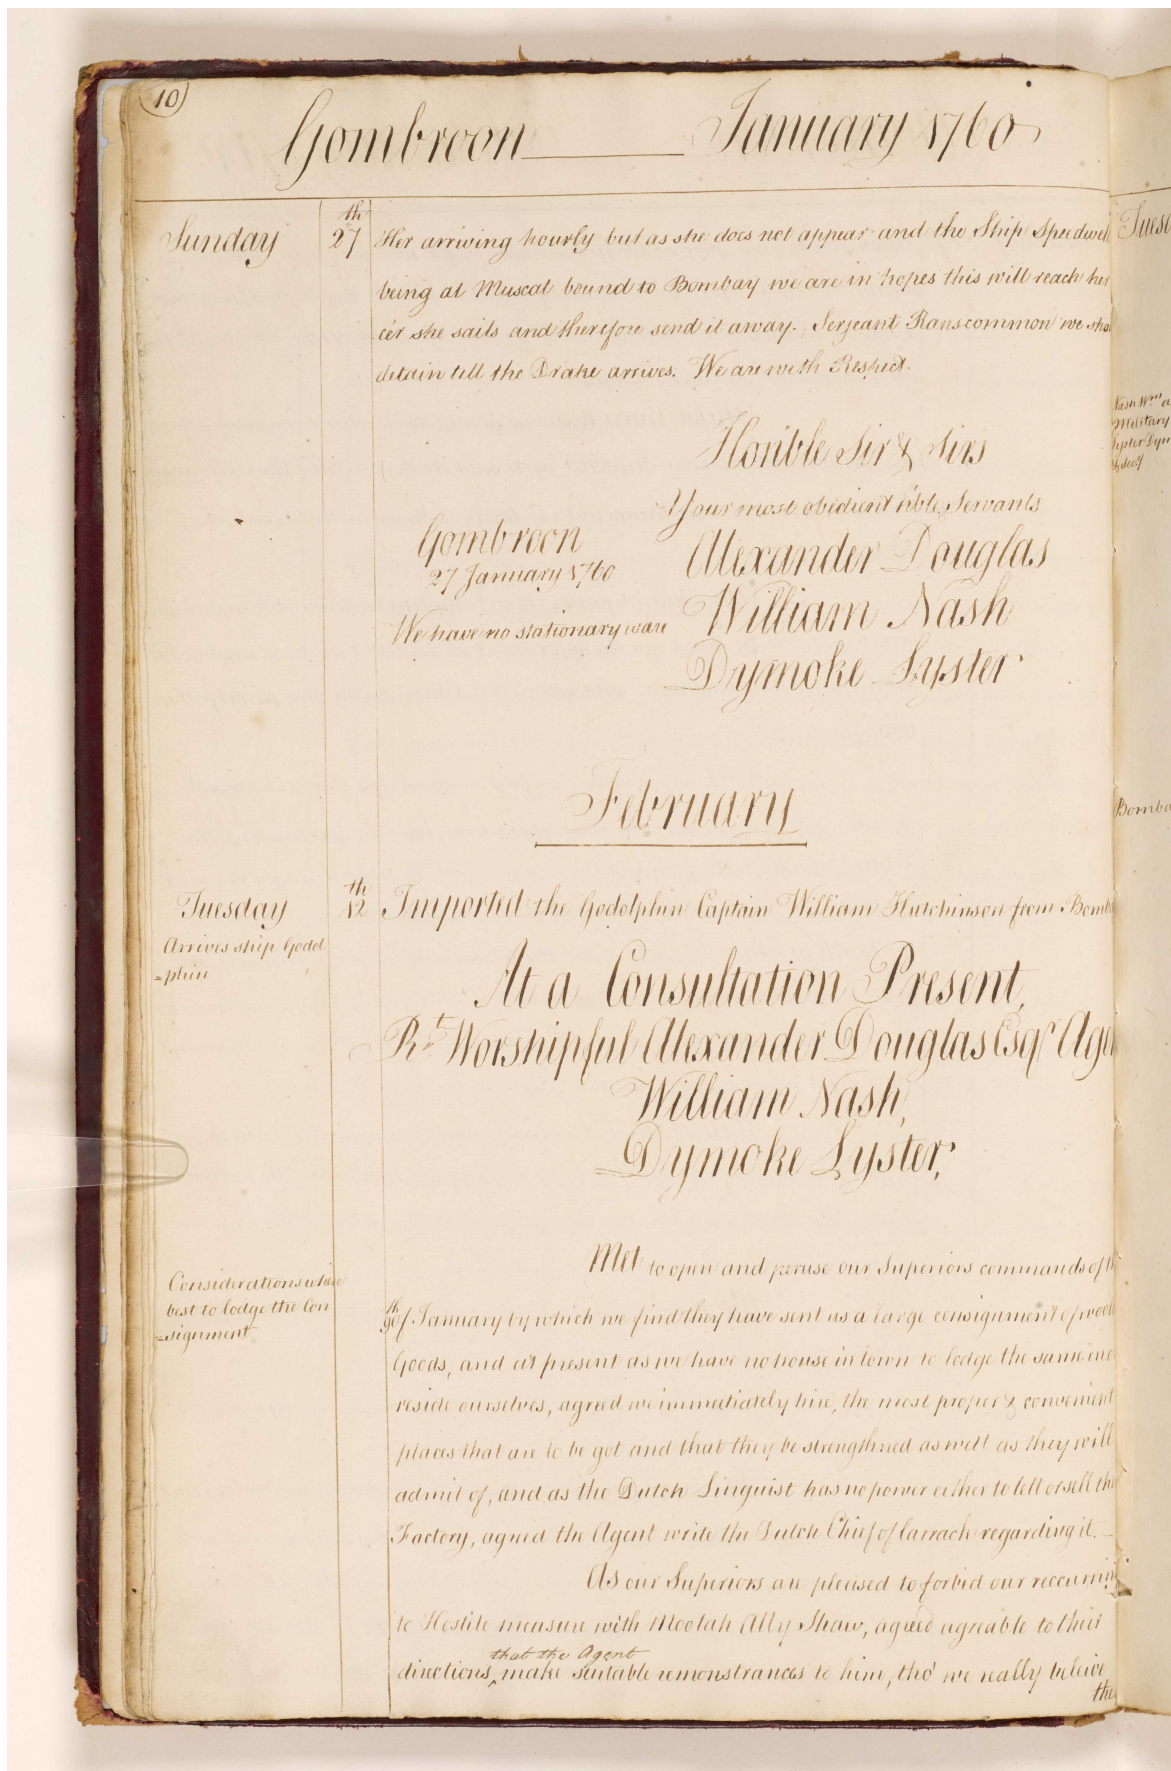 10
Gombroon January 1760
Sunday 27th Her arriving hourly but as she does not appear and the Ship Speedwell
being at Muscat bound to Bombay we are in hopes this will reach her
e'er she sails and therefore send it away. Serjeant Ranscommon we sha
detain till the Drake arrives. We are with Respect.
Hon'ble Sir & Sirs
Your most obedient h'ble Servants
Gombroon
27 January 1760
We have no stationary ware
Alexander Douglas
William Nash
Dymoke Lyster
February
Tuesday 12th Imported the Godolphin Captain William Hutchinson from Bomb
Arrives ship Godol
=phin
At a Consultation Present,
Rt. Worshipful Alexander Douglas Esqr. Age
William Nash,
Dymoke Lyster,
Considerations where
best to lodge the Con
=signment
Met to open and peruse our Superiors commands of
9th of January by which we find they have sent us a large consignment of wool
Goods, and at present as we have no house in town to lodge the same
reside ourselves, agreed we immediately hire, the most proper & convenient
places that are to be got and that they be strengthned as well as they will
admit of, and as the Dutch Linguist has no power either to lett or sell the
Factory, agreed the Agent write the Dutch Chief of Carrack regarding it. —
As our Superiors are pleased to forbid our reccurrin
to Hostile measure with Moolah Ally Shaw, agreed agreable to their
that the Agent
directions, ^ make suitable remonstrances to him, tho' we really beleive
the
Tues
Nash Wm a
Military
Lyster Dym
Secy
Bomba